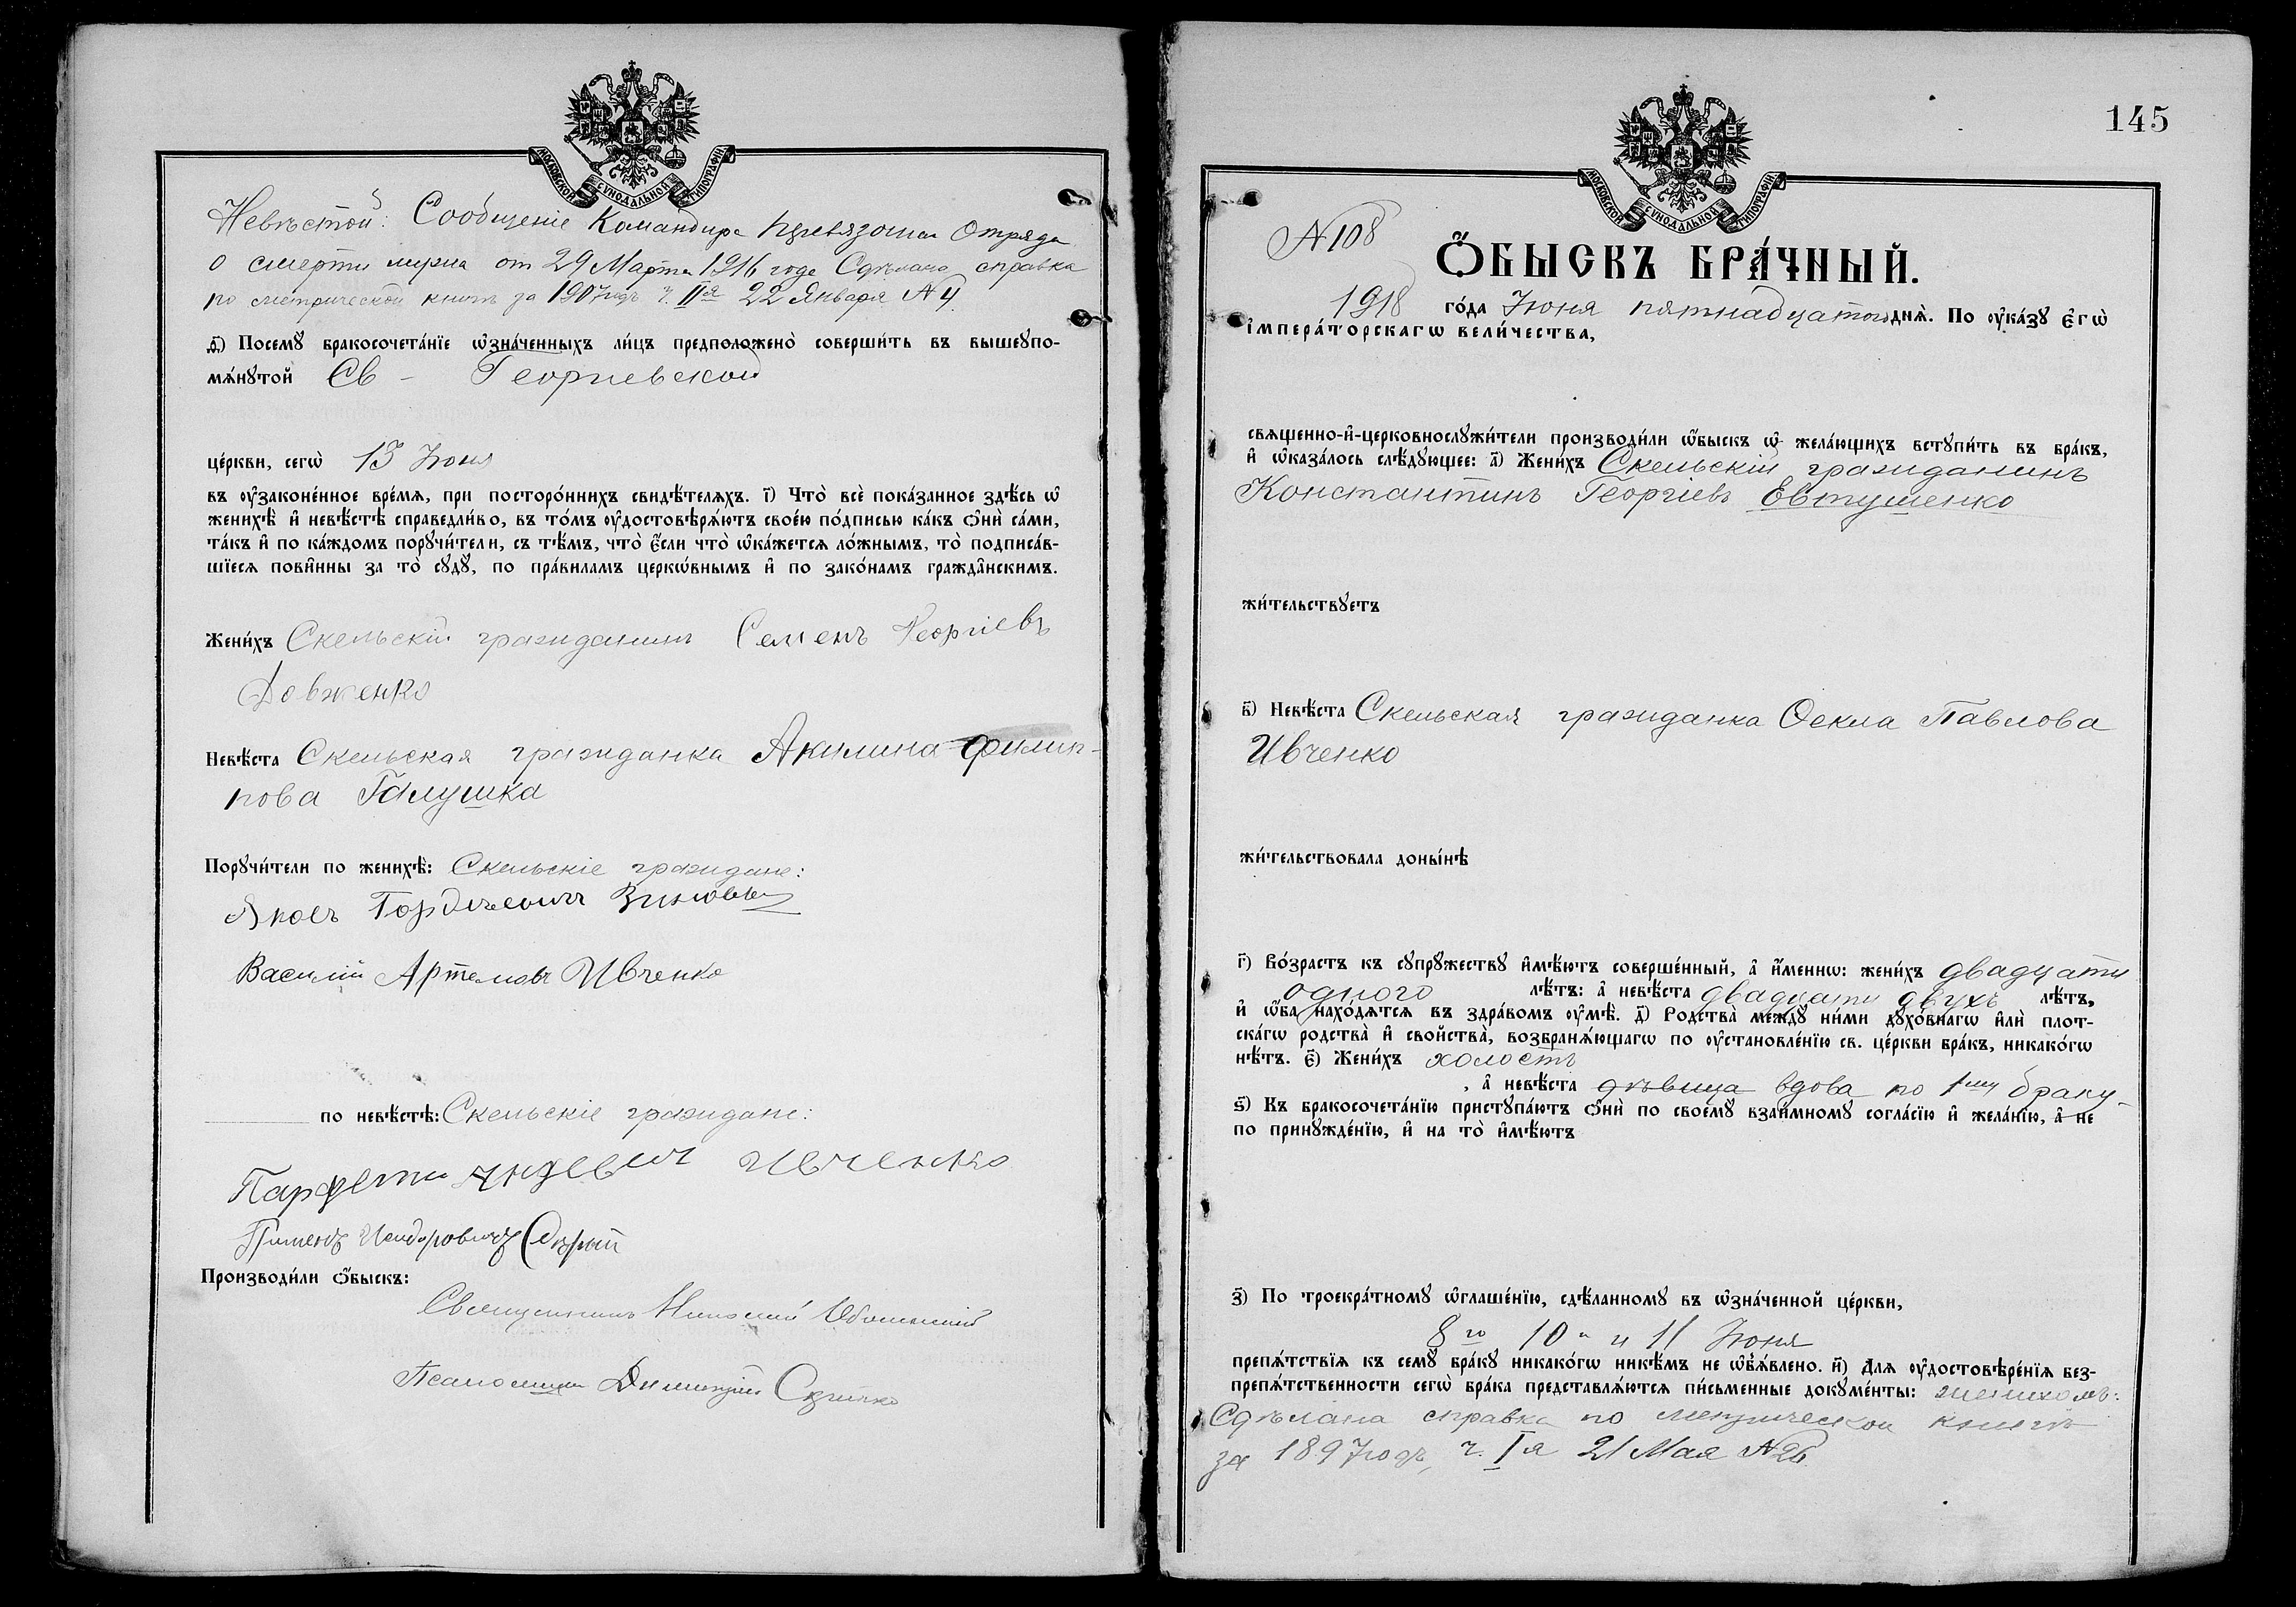 МОСКОВСКОЙ СѴНОДАЛЬНОЙ ТИПОГРАФІИ
Невѣстой: Сообщеніе Командира Отряда
о смерти мужа от 29 Марта 1916 года Сдѣлана справка
по метрической книгѣ за 1907 годъ ч. IIя 22 Января №4.
д҃і) Посемꙋ бракосочета́нїе ѡ҆зна́ченныхъ ли́цъ предположено̀ соверши́ть въ вышеꙋпо-
мѧ́нꙋтой Св - Георгиевской
це́ркви, сегѡ̀ 13 Іюня
въ ᲂу҆законе́нное вре́мѧ, при посторо́ннихъ свидѣ́телѧхъ. і҃) Что̀ всѐ пока́занное здѣ́сь ѡ҆
женихѣ̀ и҆ невѣ́стѣ справедли́во, въ то́мъ ᲂу҆достовѣрѧ́ютъ свое́ю по́дписью ка́къ ѻ҆нѝ са́ми,
та́къ и҆ по ка́ждомъ порꙋчи́тели, съ тѣ́мъ, что̀ є҆́сли что̀ ѡ҆ка́жетсѧ ло́жнымъ, то̀ подписа́в-
шїесѧ пови́нны за то̀ сꙋдꙋ̀, по пра́виламъ церко́внымъ и҆ по зако́намъ гражда́нскимъ.
Жени́хъ Скельскій гражданинъ Семенъ Георгіевъ
Довженко
Невѣ́ста Скельская гражданка Акилина Филип-
пова Галушка
Порꙋчи́тели по женихѣ̀: Скельскіе граждане:
Яковъ Гордѣевичъ
Василій Артемовъ Ивченко
по невѣ́стѣ: Скельскіе граждане:
Ивченко
Пименъ
Производи́ли ѻ҆́быскъ:
Священникъ Николай
Псаломщикъ Димитрій
145
МОСКОВСКОЙ СѴНОДАЛЬНОЙ ТИПОГРАФІИ
№108
Ѻ҆́БЫСКЪ БРА́ЧНЫЙ.
1918 го́да Іюня пятнадцатого днѧ̀. По ᲂу҆ка́зꙋ є҆гѡ̀
і҆мпера́торскагѡ вели́чества,
свѧщенно-и҆-церковнослꙋжи́тели производи́ли ѡ҆́быскъ ѡ҆ жела́ющихъ встꙋпи́ть въ бра́къ,
и҆ ѡ҆каза́лось слѣ́дꙋющее: а҃) Жени́хъ Скельскій гражданинъ
Константинъ Георгіевъ Евтушенко
жи́тельствꙋетъ
в҃) Невѣ́ста Скельская гражданка Ѳекла Павлова
Ивченко
жи́тельствовала доны́нѣ
г҃) Во́зрастъ къ сꙋпрꙋ́жествꙋ и҆мѣ́ютъ соверше́нный, а҆ и҆́меннѡ: жени́хъ двадцати
одного лѣ́тъ: а҆ невѣ́ста двадцати двухъ лѣ́тъ,
и҆ ѡ҆́ба нахо́дѧтсѧ въ здра́вомъ ᲂу҆мѣ̀. д҃) Родства̀ междꙋ̀ ни́ми дꙋхо́внагѡ и҆лѝ плот-
ска́гѡ родства̀ и҆ свойства̀, возбранѧ́ющагѡ по ᲂу҆становле́нїю св. це́ркви бра́къ, никако́гѡ
нѣ́тъ. є҃) Жени́хъ холостъ
, а҆ невѣ́ста дѣвица вдова по 1му браку-
ѕ҃) Къ бракосочета́нїю пристꙋпа́ютъ ѻ҆нѝ по своемꙋ̀ взаи́мномꙋ согла́сїю и҆ жела́нїю, а҆ не
по принꙋжде́нїю, и҆ на то̀ и҆мѣ́ютъ
з҃) По троекра́тномꙋ ѡ҆глаше́нїю, сдѣ́ланномꙋ въ ѡ҆зна́ченной це́ркви,
8го 10 и 11 Іюня
препѧ́тствїѧ къ семꙋ̀ бра́кꙋ никако́гѡ никѣ́мъ не ѡ҆б̾ѧ́влено. и҃) Длѧ ᲂу҆достовѣре́нїѧ без-
препѧ́тственности сегѡ̀ бра́ка представлѧ́ютсѧ пи́сьменные докꙋме́нты: женихомъ:
Сдѣлана справка по метрической книгѣ
за 1897 годъ, ч. Iя 21 Мая №26.